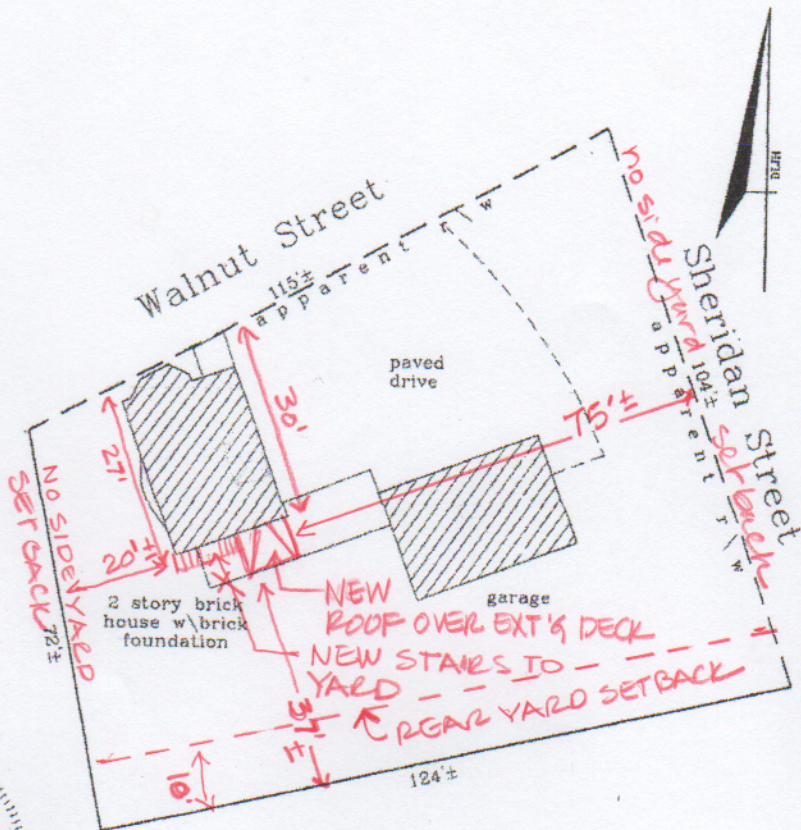 Walnut Street
115'±
apparent r\w
Sheridan Street
104'±
apparent r\w
no side yard setback
paved
drive
30'
27'
75'±
NO SIDE YARD
SET BACK
72'±
20'±
2 story brick
house w\brick
foundation
garage
NEW
ROOF OVER EXT'G DECK
NEW STAIRS TO
YARD
REAR YARD SETBACK
37'±
10'
124'±